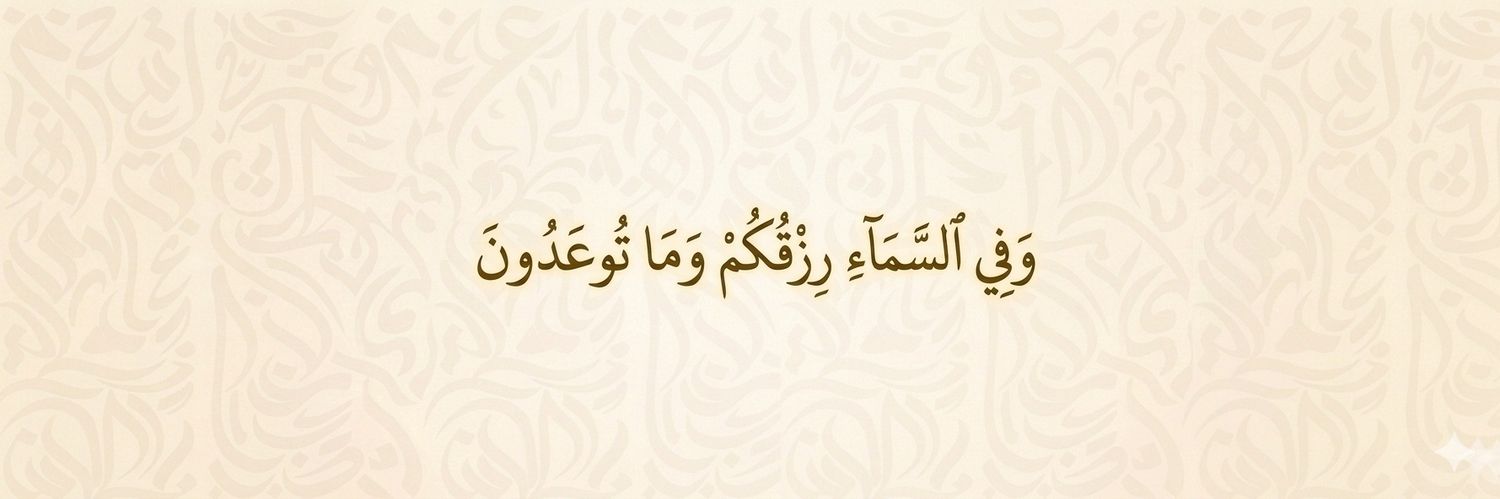 وَفِي ٱلسَّمَآءِ رِزْقُكُمْ وَمَا تُوعَدُونَ